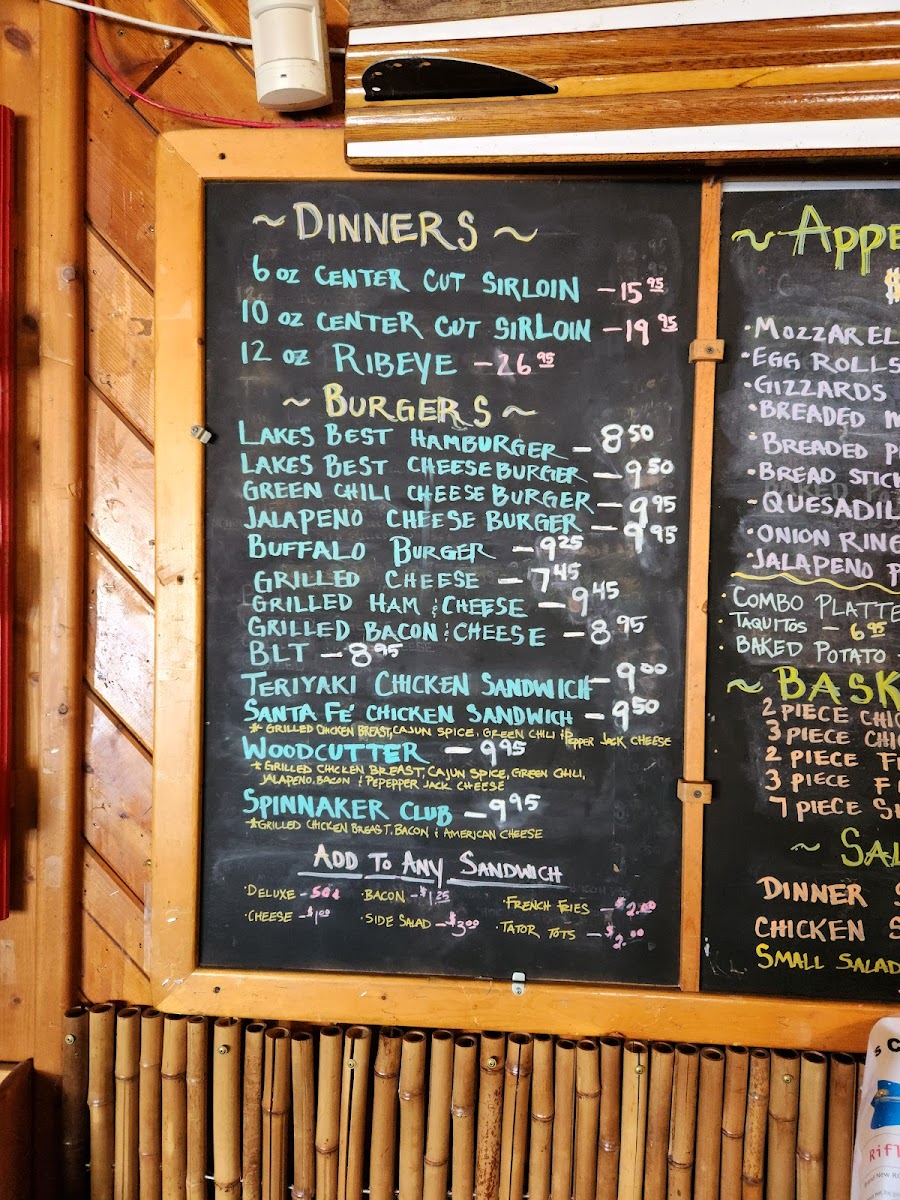 ~ DINNERS ~
6 oz CENTER CUT SIRLOIN - 15 95
10 oz CENTER CUT SIRLOIN - 19 95
12 oz RIBEYE - 26 95
~ BURGERS ~
LAKES BEST HAMBURGER - 8 50
LAKES BEST CHEESEBURGER - 9 50
GREEN CHILI CHEESE BURGER - 9 95
JALAPENO CHEESE BURGER - 9 95
BUFFALO BURGER - 9 25
GRILLED CHEESE - 7 45
GRILLED HAM & CHEESE - 9 45
GRILLED BACON & CHEESE - 8 95
BLT - 8 95
TERIYAKI CHICKEN SANDWICH - 9 00
SANTA FE' CHICKEN SANDWICH - 9 50
* GRILLED CHICKEN BREAST, CAJUN SPICE, GREEN CHILI & PEPPER JACK CHEESE
WOODCUTTER - 9 95
* GRILLED CHICKEN BREAST, CAJUN SPICE, GREEN CHILI,
JALAPENO, BACON & PEPEPPER JACK CHEESE
SPINNAKER CLUB - 9 95
* GRILLED CHICKEN BREAST, BACON & AMERICAN CHEESE
ADD TO ANY SANDWICH
· DELUXE - 50¢ · BACON - $1 25 · FRENCH FRIES - $2.00
· CHEESE - $1 00 · SIDE SALAD - $3 00 · TATOR TOTS - $2.00
~ APPE
$
· MOZZAREL
· EGG ROLLS
· GIZZARDS
· BREADED
BREADED P
· BREAD STICK
- QUESADIL
· ONION RING
· JALAPENO P
· COMBO PLATTE
· TAQUITOS - 6 95
· BAKED POTATO -
~ BASK
2 PIECE CHIC
3 PIECE CHIC
2 PIECE F
3 PIECE F
7 PIECE S
~ SAL
DINNER S
CHICKEN S
SMALL SALAD